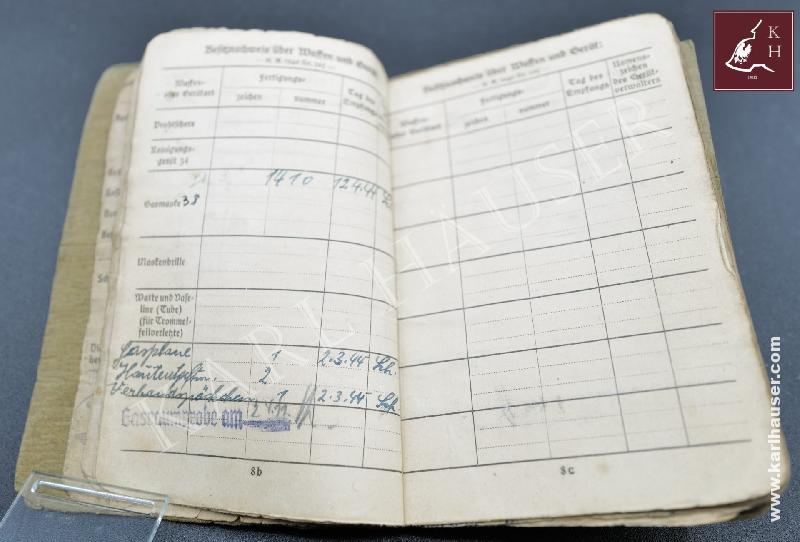 Besitznachweis über Waffen und Gerät:
Waffen-
oder Gerätart
Fertigungs-
zeichen
nummer
Tag des
Empfangs
Drahtschere
Reinigungs-
gerät 34
Gasmaske 38
1410
12.4.44
Maskenbrille
Watte und Vase-
line (Tube)
(für Trommel-
fellverletzte)
Gasplane 1 2.3.45 Sch.
2
Verbandpäckchen 1 2.3.45 Sch.
Gasraumprobe am
8b
Besitznachweis über Waffen und Gerät:
Waffen-
oder Gerätart
Fertigungs-
zeichen
nummer
Tag des
Empfangs
Namens-
zeichen
des Gerät-
verwalters
8c
KARL HÄUSER
K
H
www.karlhauser.com